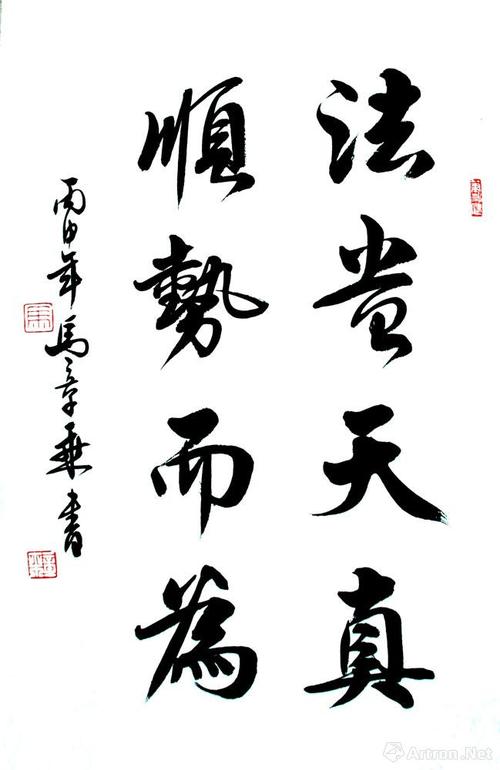 法貴天真
順勢而為
丙申年馬章乘書
Artron.Net